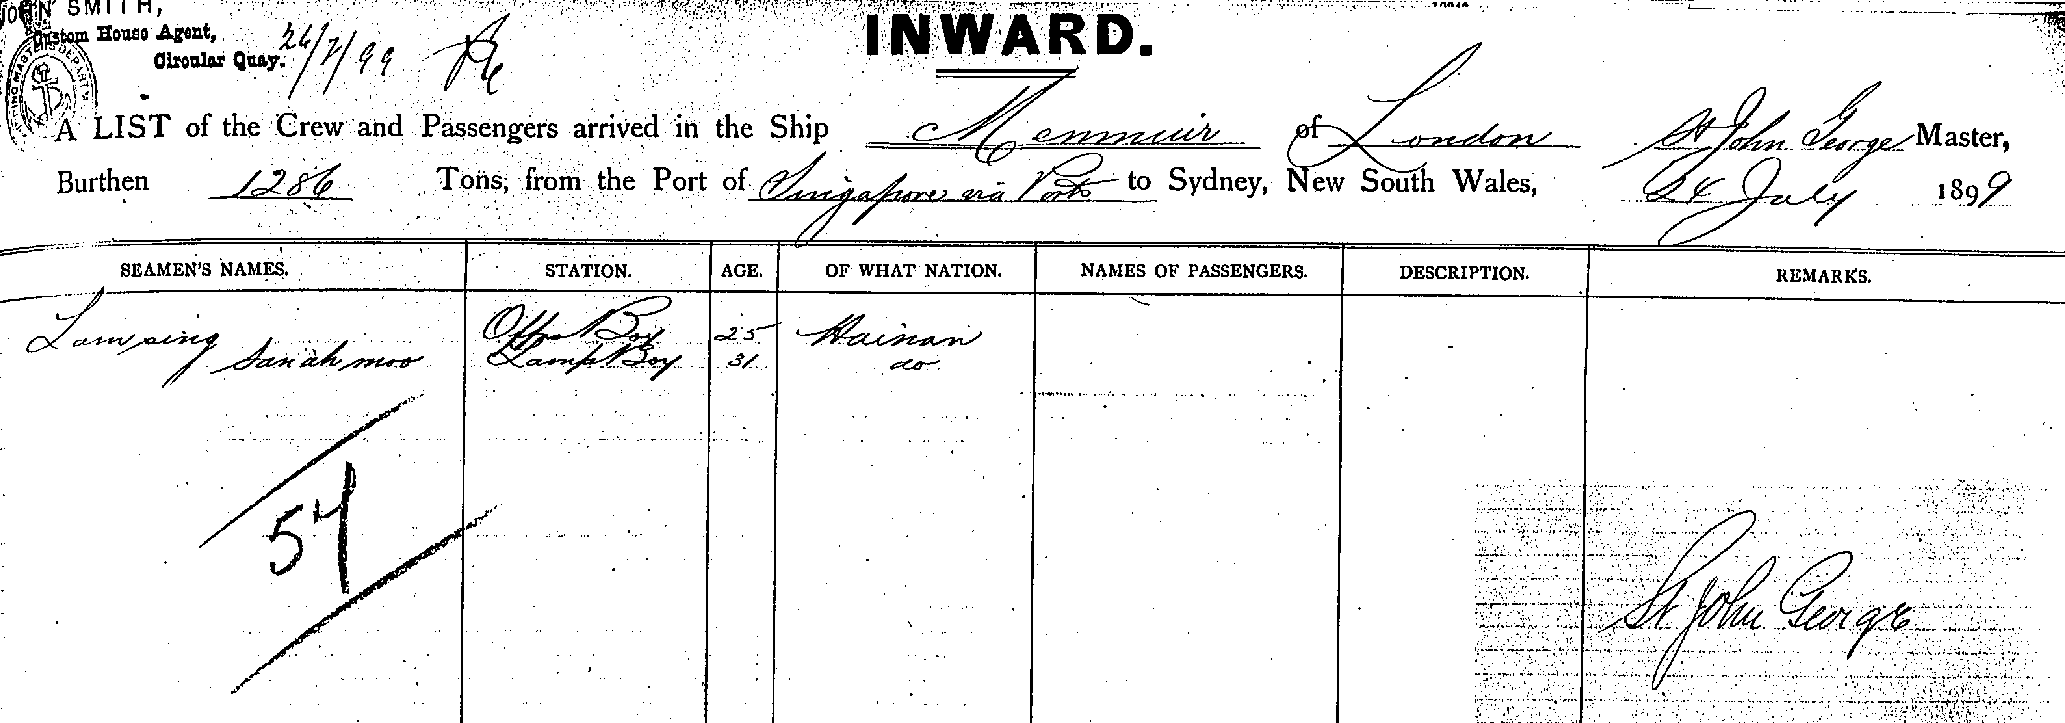 JOHN SMITH,
Custom House Agent,
Circular Quay.
26/7/99
INWARD.
A LIST of the Crew and Passengers arrived in the Ship Menmuir of London St John George Master,
Burthen 1286 Tons, from the Port of Singapore via Ports to Sydney, New South Wales, 24 July 1899
SEAMEN'S NAMES. STATION. AGE. OF WHAT NATION. NAMES OF PASSENGERS. DESCRIPTION. REMARKS.
Lam sing Boy 25 Hainan
Sanah moo Lamp Boy 31 do
57
St John George